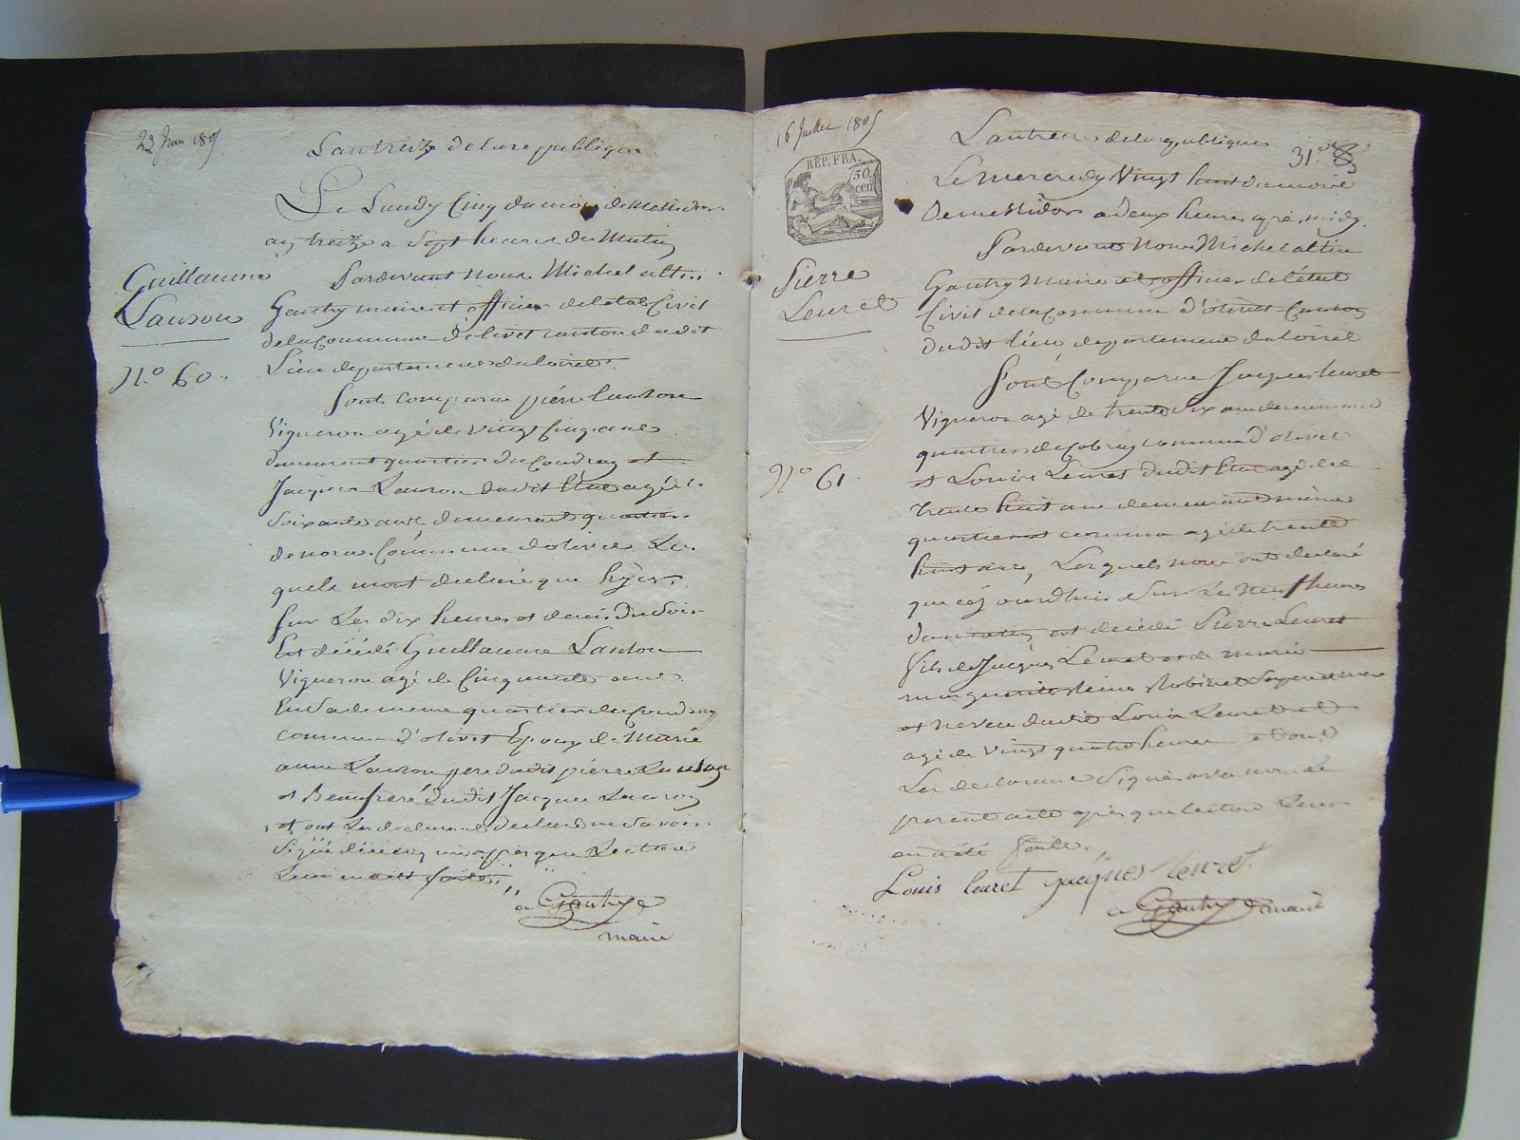 23 Juin 1805
L'an treize de la republique
Le Lundy Cinq du mois de Messidor
an treize a Sept heures du Matin
Guillaume
Lanson
N.o 60.
Pardevant nous Michel altin
Gauthy maire et officier de l'etat Civil
de la Commune d'olivet canton dudit
Lieu departement du loiret
Sont comparu pierre lanson
Vigneron agé de vingt Cinq ans
demeurant quartier du Coudray et
Jacques Lanson dudit lieu agé de
Soixante ans demeurant quartier
Commune d'olivet Les
quels mont declaré que hyer
sur Les dix heures et demi du Soir
Est décédé Guillaume Lanson
Vigneron agé de Cinquante ans
En sa demeure quartier du Coudray
commune d'olivet Epoux de Marie
anne Lanson pere dudit pierre Lanson
et Beaufrere dudit Jacques Lanson
et ont Les declarans declaré ne Savoir
Signé de ce enquis apres que Lecture
Leur en a été faite
a Gauthy
maire
16 Juillet 1805
REP. FRA.
50
cen
L'an treize de la republique
31.
Le Mercredy Vingt huit du mois
de messidor a deux heures apré midy
Pierre
Leuret
N.o 61.
Pardevant Nous Michel altin
Gauthy Maire et officier de l'état
Civil de la Commune d'olivet Canton
dudit lieu departement du loiret
Sont Comparu Jacques leuret
Vigneron agé de trente six ans demeurant
quartier de Commune d'olivet
et Louis Leuret dudit lieu agé de
trente huit ans demeurant même
quartier et commune agé de trente
huit ans, Lesquels nous ont declaré
que cejourdhuy Sur Les Neuf heures
du matin est décédé Pierre Leuret
fils de Jacques Leuret et de marie
marguerite Robinet
et neveu dudit Louis Leuret
agé de Vingt quatre heures et ont
Les declarans Signés avec nous Le
present acte après que lecture Leur
en a été faite.
Louis leuret jacques leuret
a Gauthy maire